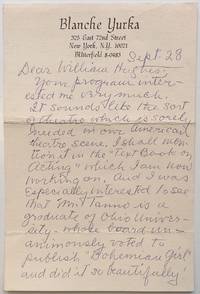 Blanche Yurka
325 East 72nd Street
New York, N.Y. 10021
BUtterfield 8-0483
Sept. 28
Dear William Hughes:
Your program inter-
ested me very much.
It sounds like the sort
of theatre which is sorely
needed in our American
theatre scene. I shall men-
tion it in the "Text Book on
Acting" which I am now
working on. And I was
especially interested to see
that Mr. Tanno is a
graduate of Ohio Univer-
sity - whose board un-
animously voted to
publish "Bohemian Girl"
and did it so beautifully!